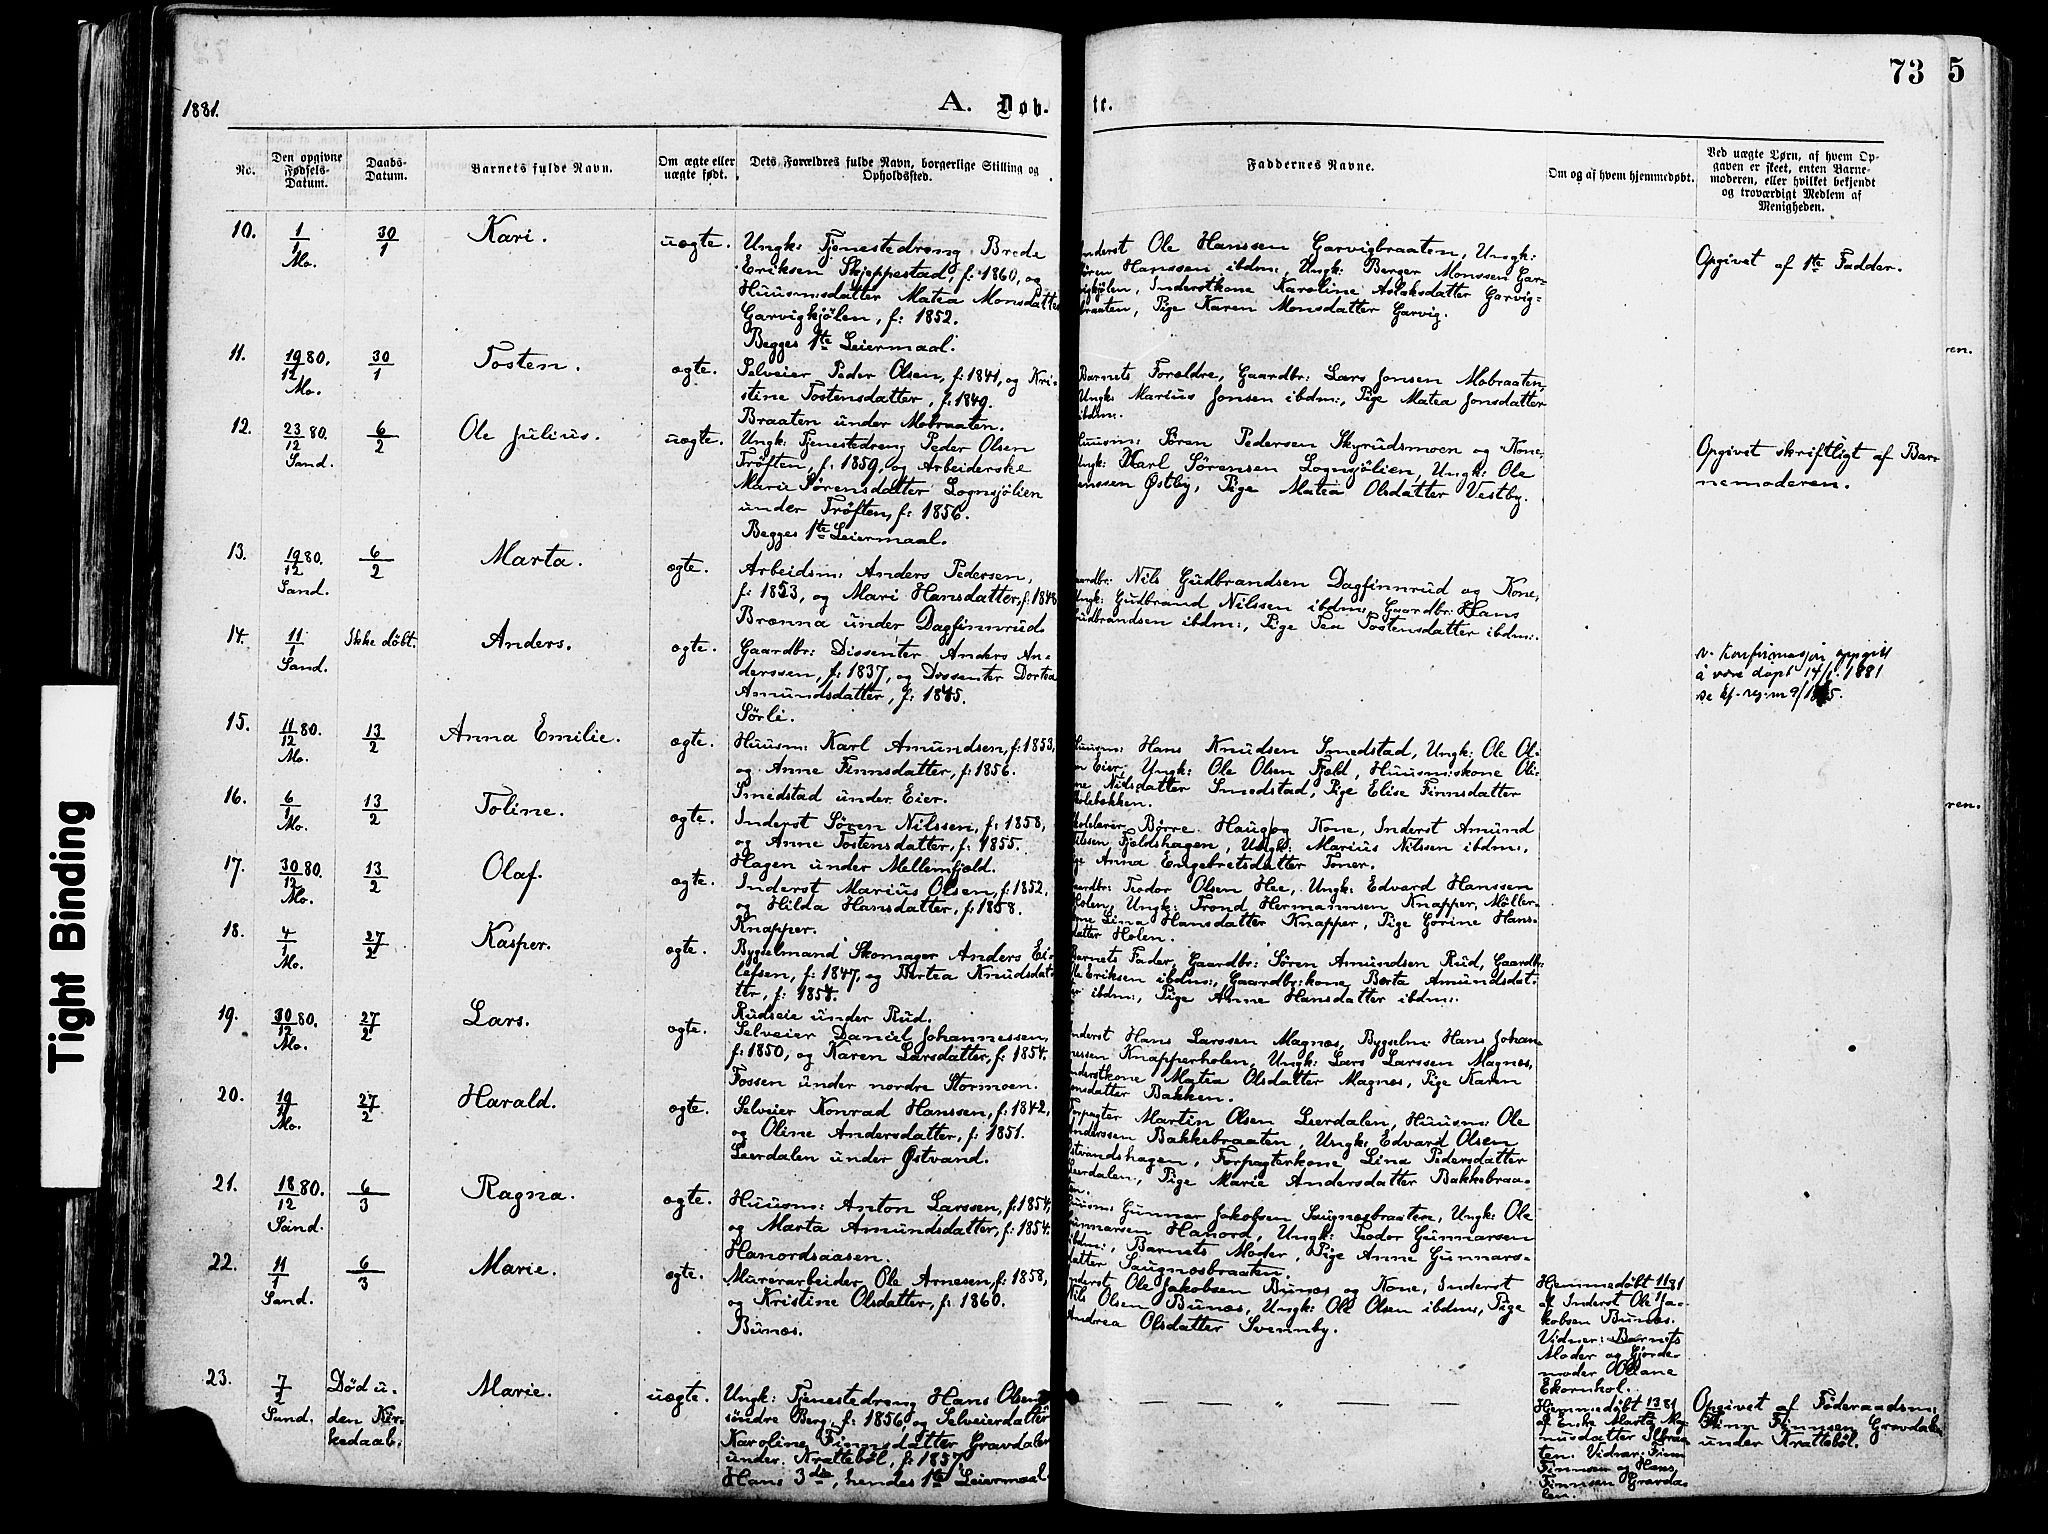 73
5
1881.
A. Døb-
te.
No.
Den opgivne Fødsels-Datum.
Daabs-Datum.
Barnets fulde Navn.
Om ægte eller uægte født.
Dets Forældres fulde Navn, borgerlige Stilling og Opholdssted.
Faddernes Navne.
Om og af hvem hjemmedøbt.
Ved uægte Børn, af hvem Op-
gaven er skeet, enten Barne-
moderen, eller hvilket bekjendt
og troværdigt Medlem af
Menigheden.
10. 1/1 Mo. 30/1 Kari. uægte.
Ungk: Tjenestedreng Brede
Eriksen Skjeppestad, f: 1860, og
Huusm:datter Matea Monsdatter
Garvigkjölen, f: 1852.
Begges 1te Leiermaal.
Inderst Ole Hanssen Garvigbraaten, Ungk:
Søren Hanssen ibdm:, Ungk: Berger Monssen Gar-
vigkjölen, Inderstkone Karoline Aslaksdatter Garvig-
braaten, Pige Karen Monsdatter Garvig.
Opgivet af 1te Fadder.
11. 19/12 80. Mo. 30/1 Tosten. ægte.
Selveier Peder Olsen, f: 1841, og Kri-
stine Tostensdatter, f: 1849.
Braaten under Mobraaten.
Barnets Forældre, Gaardbr: Lars Jonsen Mobraaten,
Ungk: Marius Jonsen ibdm:, Pige Matea Jonsdatter
ibdm:.
12. 23/12 80. Sand. 6/2 Ole Julius. uægte.
Ungk: Tjenestedreng Peder Olsen
Tröften, f: 1859, og Arbeiderske
Marie Sørensdatter Lognsjölien
under Tröften, f: 1856.
Begges 1te Leiermaal.
Huusm: Søren Pedersen Skyrudsmoen og Kone,
Ungk: Karl Sørensen Lognsjölien, Ungk: Ole
Jenssen Østby, Pige Matea Olsdatter Vestby.
Opgivet skriftligt af Bar-
nemoderen.
13. 19/12 80. Sand. 6/2 Marta. ægte.
Arbeidsm: Anders Pedersen,
f: 1853, og Mari Hansdatter, f: 1848
Brænna under Dagfinnrud.
Gaardbr: Nils Gudbrandsen Dagfinnrud og Kone,
Ungk: Gudbrand Nilssen ibdm:, Gaardbr: Hans
Gudbrandsen ibdm:, Pige Tea Tostensdatter ibdm:.
14. 11/1 Sand. Ikke döbt. Anders. ægte.
Gaardbr: Dissenter Anders An-
derssen, f: 1837, og Dissenter Dortea
Amundsdatter, f: 1845.
Sörli.
v. konfirmasjon oppgitt
å være døpt 14/1. 1881
15. 11/12 80. Mo. 13/2 Anna Emilie. ægte.
Huusm: Karl Amundsen, f: 1853,
og Anne Finnsdatter, f: 1856.
Smedstad under Eier.
Huusm: Hans Knudsen Smedstad, Ungk: Ole Ol-
sen Eier, Ungk: Ole Olsen Fjeld, Huusm:skone Oli-
ne Nilsdatter Smedstad, Pige Elise Finnsdatter
16. 6/1 Mo. 13/2 Toline. ægte.
Inderst Sören Nilssen, f: 1858,
og Anne Tostensdatter, f: 1855.
Hagen under Mellemfjeld.
Skolelærer Börre Haug og Kone, Inderst Amund
Nilssen Fjeldshagen, Ungk: Marius Nilssen ibdm:,
Pige Anna Engebretsdatter Toner.
17. 30/12 80. Mo. 13/2 Olaf. ægte.
Inderst Marius Olsen, f: 1852,
og Hilda Hansdatter, f: 1858.
Knapper.
Gaardbr: Teodor Olsen Hee, Ungk: Edvard Hanssen
Holen, Ungk: Trond Hermannsen Knapper, Möller-
kone Lina Hansdatter Knapper, Pige Gorine Hans-
datter Holen.
18. 4/1 Mo. 27/2 Kasper. ægte.
Bygselmand Skomager Anders Ei-
lefsen, f: 1847, og Bertea Knudsdat-
ter, f: 1854.
Rudseie under Rud.
Barnets Fader, Gaardbr: Sören Amundsen Rud, Gaardbr:
Ole Eriksen ibdm:, Gaardbr:kone Berta Amundsdat-
ter ibdm:, Pige Anne Hansdatter ibdm:.
19. 30/12 80. Mo. 27/2 Lars. ægte.
Selveier Daniel Johannessen,
f: 1850, og Karen Larsdatter, f: 1854.
Fossen under nordre Stormoen.
Inderst Hans Larssen Magnæs, Bygselm: Hans Johan-
nessen Knapperholen, Ungk: Lars Larssen Magnæs,
Inderstkone Matea Olsdatter Magnæs, Pige Karen
Bakken.
20. 19/1 Mo. 27/2 Harald. ægte.
Selveier Konrad Hanssen, f: 1842,
og Oline Andersdatter, f: 1851.
Leerdalen under Østvand.
Forpagter Martin Olsen Leerdalen, Huusm: Ole
Anderssen Bakkebraaten, Ungk: Edvard Olsen
Østvandshagen, Forpagterkone Lina Pedersdatter
Leerdalen, Pige Marie Andersdatter Bakkebraa-
ten.
21. 18/12 80. Sand. 6/3 Ragna. ægte.
Huusm: Anton Larssen, f: 1854,
og Marta Amundsdatter, f: 1854.
Hanordsaasen.
Huusm: Gunnar Jakobsen Saugnæsbraaten, Ungk: Ole
Gunnarsen Hanord, Ungk: Teodor Gunnarsen
ibdm:, Barnets Moder, Pige Anne Gunnars-
datter Saugnæsbraaten.
22. 11/1 Sand. 6/3 Marie. ægte.
Murerarbeider Ole Arnesen, f: 1858,
og Kristine Olsdatter, f: 1860.
Bunæs.
Inderst Ole Jakobsen Bunæs og Kone, Inderst
Nils Olsen Bunæs, Ungk: Ole Olsen ibdm:, Pige
Andrea Olsdatter Svennby.
Hjemmedöbt 11/1 81
af Inderst Ole Ja-
kobsen Bunæs.
Vidner: Barnets
Moder og Gjorde-
moder Oliane
Ekornhol.
23. 7/2 Sand. Död u-
den Kir-
kedaab. Marie. uægte.
Ungk: Tjenestedreng Hans Olsen
söndre Berg, f: 1856 og Selveierdatter
Karoline Finnsdatter Gravdalen
under Kratteböl, f: 1857
Hans 3die, hendes 1te Leiermaal.
— — „ — —
Hjemmedöbt 13/2 81
af Enke Marta Mag-
nusdatter
Vidner: Finn
Finnsen og Hans
Finnsen Gravda-
len.
Opgivet af Föderaadsm:
Finn Finnsen Gravdalen
under Kratteböl.
ren.
ren.
Tight Binding